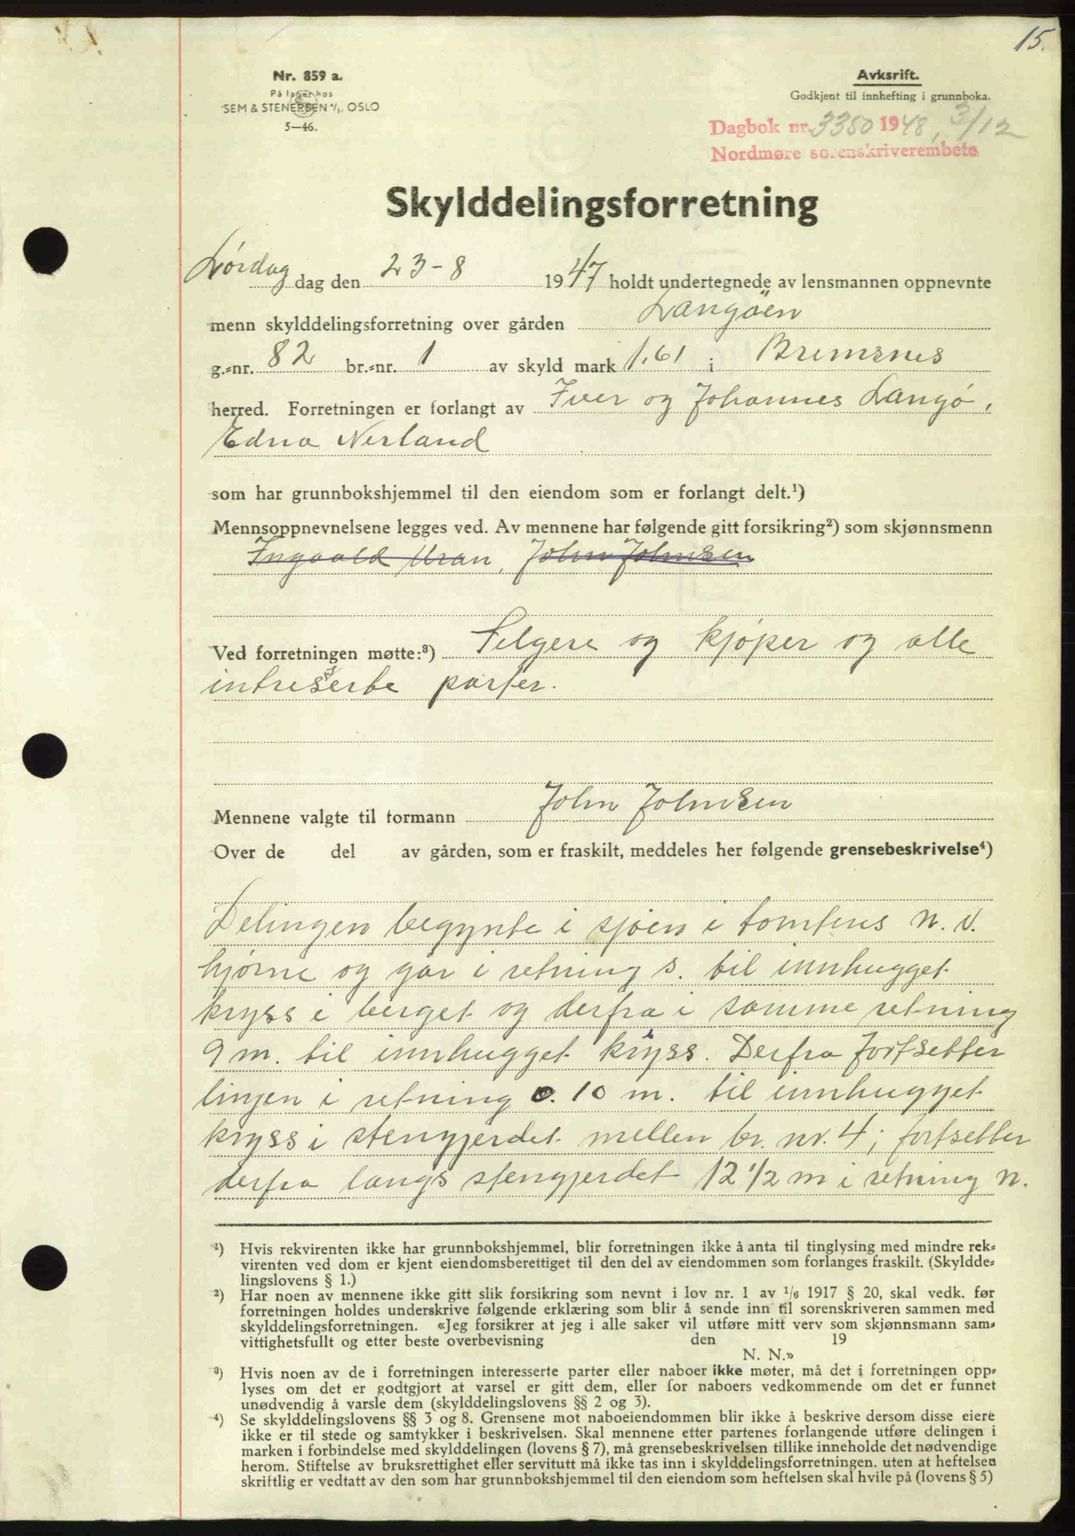 15.
Nr. 859 a.
På lager hos
SEM & STENERSEN A/S, OSLO
5—46.
Avksrift.
Godkjent til innhefting i grunnboka.
Dagbok nr. 3350 1948, 3/12
Nordmøre sorenskriverembete
Skylddelingsforretning
Lørdag dag den 23-8 1947 holdt undertegnede av lensmannen oppnevnte
menn skylddelingsforretning over gården Langöen
g.-nr. 82 br.-nr. 1 av skyld mark 1,61 i Bremsnes
herred. Forretningen er forlangt av Iver og Johannes Langø,
Edna Nerland
som har grunnbokshjemmel til den eiendom som er forlangt delt.¹)
Mennsoppnevnelsene legges ved. Av mennene har følgende gitt forsikring²) som skjønnsmenn
Ingvald Uran, John Johnsen
Ved forretningen møtte:³) Selgere og kjøper og alle
intresserte parter.
Mennene valgte til formann John Johnsen
Over de del av gården, som er fraskilt, meddeles her følgende grensebeskrivelse⁴)
Delingen begynte i sjøen i tomtens n.v.
hjørne og går i retning s. til innhugget
kryss i berget og derfra i samme retning
9 m. til innhugget kryss. Derfra fortsetter
linjen i retning o. 10 m. til innhugget
kryss i stengjerdet mellen br. nr. 4; fortsetter
derfra langs stengjerdet 12 1/2 m i retning n.
¹) Hvis rekvirenten ikke har grunnbokshjemmel, blir forretningen ikke å anta til tinglysing med mindre rek-
virenten ved dom er kjent eiendomsberettiget til den del av eiendommen som forlanges fraskilt. (Skyldde-
lingslovens § 1.)
²) Har noen av mennene ikke gitt slik forsikring som nevnt i lov nr. 1 av 1/6 1917 § 20, skal vedk. før
forretningen holdes underskrive følgende erklæring som blir å sende inn til sorenskriveren sammen med
skylddelingsforretningen. «Jeg forsikrer at jeg i alle saker vil utføre mitt verv som skjønnsmann sam-
vittighetsfullt og etter beste overbevisning den 19
N. N.»
³) Hvis noen av de i forretningen interesserte parter eller naboer ikke møter, må det i forretningen opp-
lyses om det er godtgjort at varsel er gitt dem, eller for naboers vedkommende om det er funnet
unødvendig å varsle dem (skylddelingslovens §§ 2 og 3).
⁴) Se skylddelingslovens §§ 3 og 8. Grensene mot naboeiendommen blir ikke å beskrive dersom disse eiere
ikke er til stede og samtykker i beskrivelsen. Skal mennene etter partenes forlangende utføre delingen i
marken i forbindelse med skylddelingen (lovens § 7), må grensebeskrivelsen tillike inneholde det nødvendige
herom. Stiftelse av bruksrettighet eller servitutt må ikke tas inn i skylddelingsforretningen. uten at heftelsen
skriftlig er vedtatt av den som har grunnbokshjemmel til den eiendom som heftelsen skal hvile på (lovens § 5)